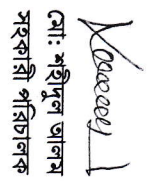 মো: শহীদুল আলম
সহকারি পরিচালক